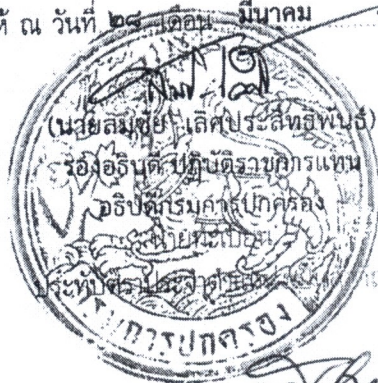 ห้ ณ วันที่ ๒๘ เดือน มีนาคม
(นายสมชัย เลิศประสิทธิพันธ์)
รองอธิบดี ปฏิบัติราชการแทน
อธิบดีกรมการปกครอง
นายทะเบียน
ประทับตราประจำ
กรมการปกครอง